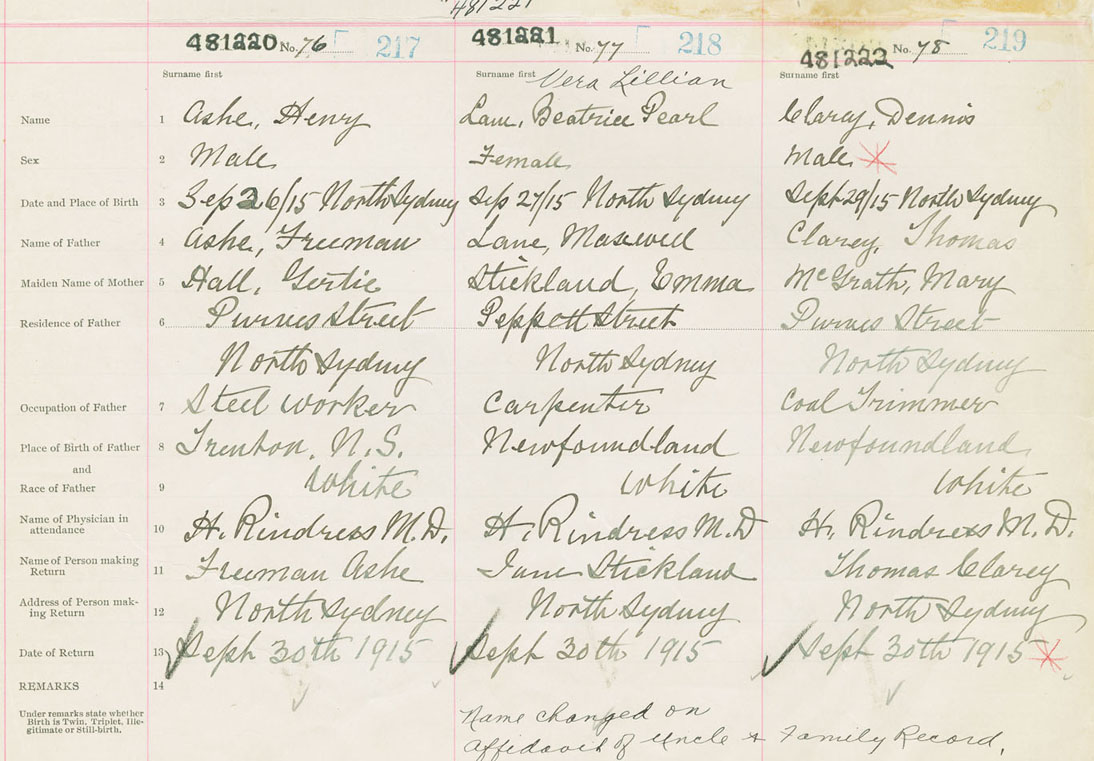 481221
481220 No. 76 217 481221 No. 77 218 481222 No. 78 219
Surname first Surname first Vera Lillian Surname first
Name 1 Ashe, Henry Lane, Beatrice Pearl Clarey, Dennis
Sex 2 Male Female Male
Date and Place of Birth 3 Sep 26/15 North Sydney Sep 27/15 North Sydney Sept 29/15 North Sydney
Name of Father 4 Ashe, Freeman Lane, Maxwell Clarey, Thomas
Maiden Name of Mother 5 Hall, Gertie Stickland, Emma McGrath, Mary
Residence of Father 6 Purves Street Peppett Street Purves Street
North Sydney North Sydney North Sydney
Occupation of Father 7 Steel worker Carpenter Coal Trimmer
Place of Birth of Father 8 Trenton, N.S. Newfoundland Newfoundland
and
Race of Father 9 White White White
Name of Physician in attendance 10 H. Rindress M.D. H. Rindress M.D H. Rindress M.D.
Name of Person making Return 11 Freeman Ashe Jane Stickland Thomas Clarey
Address of Person mak-ing Return 12 North Sydney North Sydney North Sydney
Date of Return 13 Sept 30th 1915 Sept 30th 1915 Sept 30th 1915
REMARKS 14
Under remarks state whether
Birth is Twin, Triplet, Ille-
gitimate or Still-birth.
Name changed on
affidavit of Uncle & Family Record.